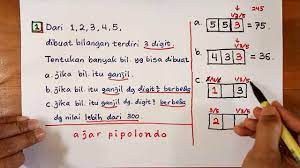 1 Dari 1, 2, 3, 4, 5,
dibuat bilangan terdiri 3 digit.
Tentukan banyak bil. yg bisa dibuat
a. jika bil. itu ganjil.
b. jika bil. itu ganjil dg digit berbeda
c. jika bil. itu ganjil dg digit berbeda
dg nilai lebih dari 300.
ajar pipolondo
245
1/3/5
a. 5 5 3 = 75.
1/3/5
b. 4 3 3 = 36.
1/3/5
c. 1 3
2